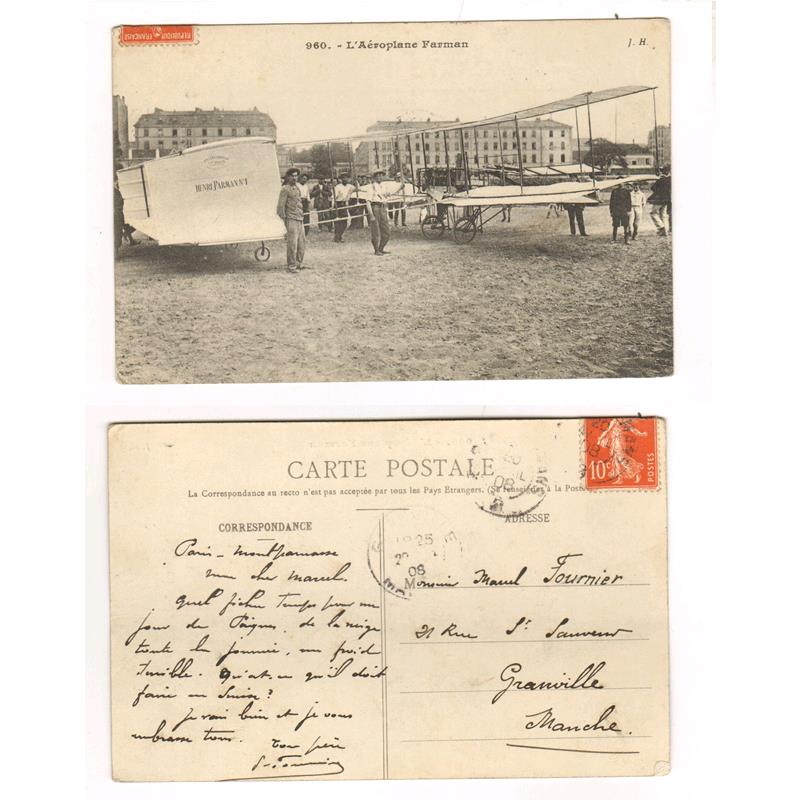 REPUBLIQUE FRANÇAISE
960. - L'Aéroplane Farman
J. H.
HENRI FARMAN Nº1
CARTE POSTALE
La Correspondance au recto n'est pas acceptée par tous les Pays Etrangers. (Se renseignez à la Poste
10c
POSTES
CORRESPONDANCE
ADRESSE
Paris - Montparnasse
mon cher Marcel.
Quel fichu temps pour un
jour de Pâques, de la neige
toute la journée, un froid
terrible. Qu'est-ce qu'il doit
faire en Suisse?
je vais bien et je vous
embrasse tous.
Ton père
Monsieur Marcel Fournier
21 Rue St Sauveur
Granville
Manche.